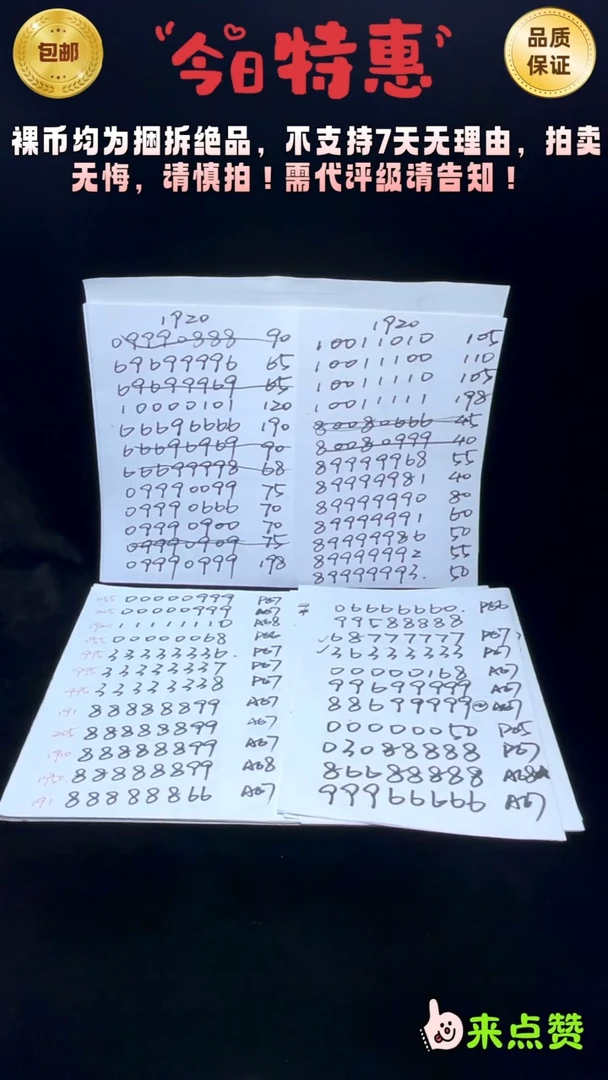 包邮
今日特惠
品质
保证
裸币均为捆拆绝品，不支持7天无理由，拍卖
无悔，请慎拍！需代评级请告知！
1920
09990888 90
69699996 65
69699969 65
10000101 120
66696666 190
66696969 90
66699998 68
09990099 75
09990666 70
09990900 70
09990909 75
09990999 198
1920
10011010 105
10011100 110
10011110 105
10011111 198
80080666 45
80080999 40
89999968 55
89999981 40
89999990 80
89999991 60
89999986 50
89999992 55
89999993. 50
00000999 P67
205 00000999 A67
11111110 A68
00000068 P66
33333336. P67
33333337 P67
33333338 P67
191 88888899 A67
205 88888899 A67
1910 88888899 A67
1920. 88888899 A68
191 88888866 A67
06666660. P66
99588888
✓68777777 P67
✓36333333 P67
00000168 A67
99699999 A67
88699999 A67
00000050 P65
03088888 P67
86688888 A68
99966666 A67
来点赞